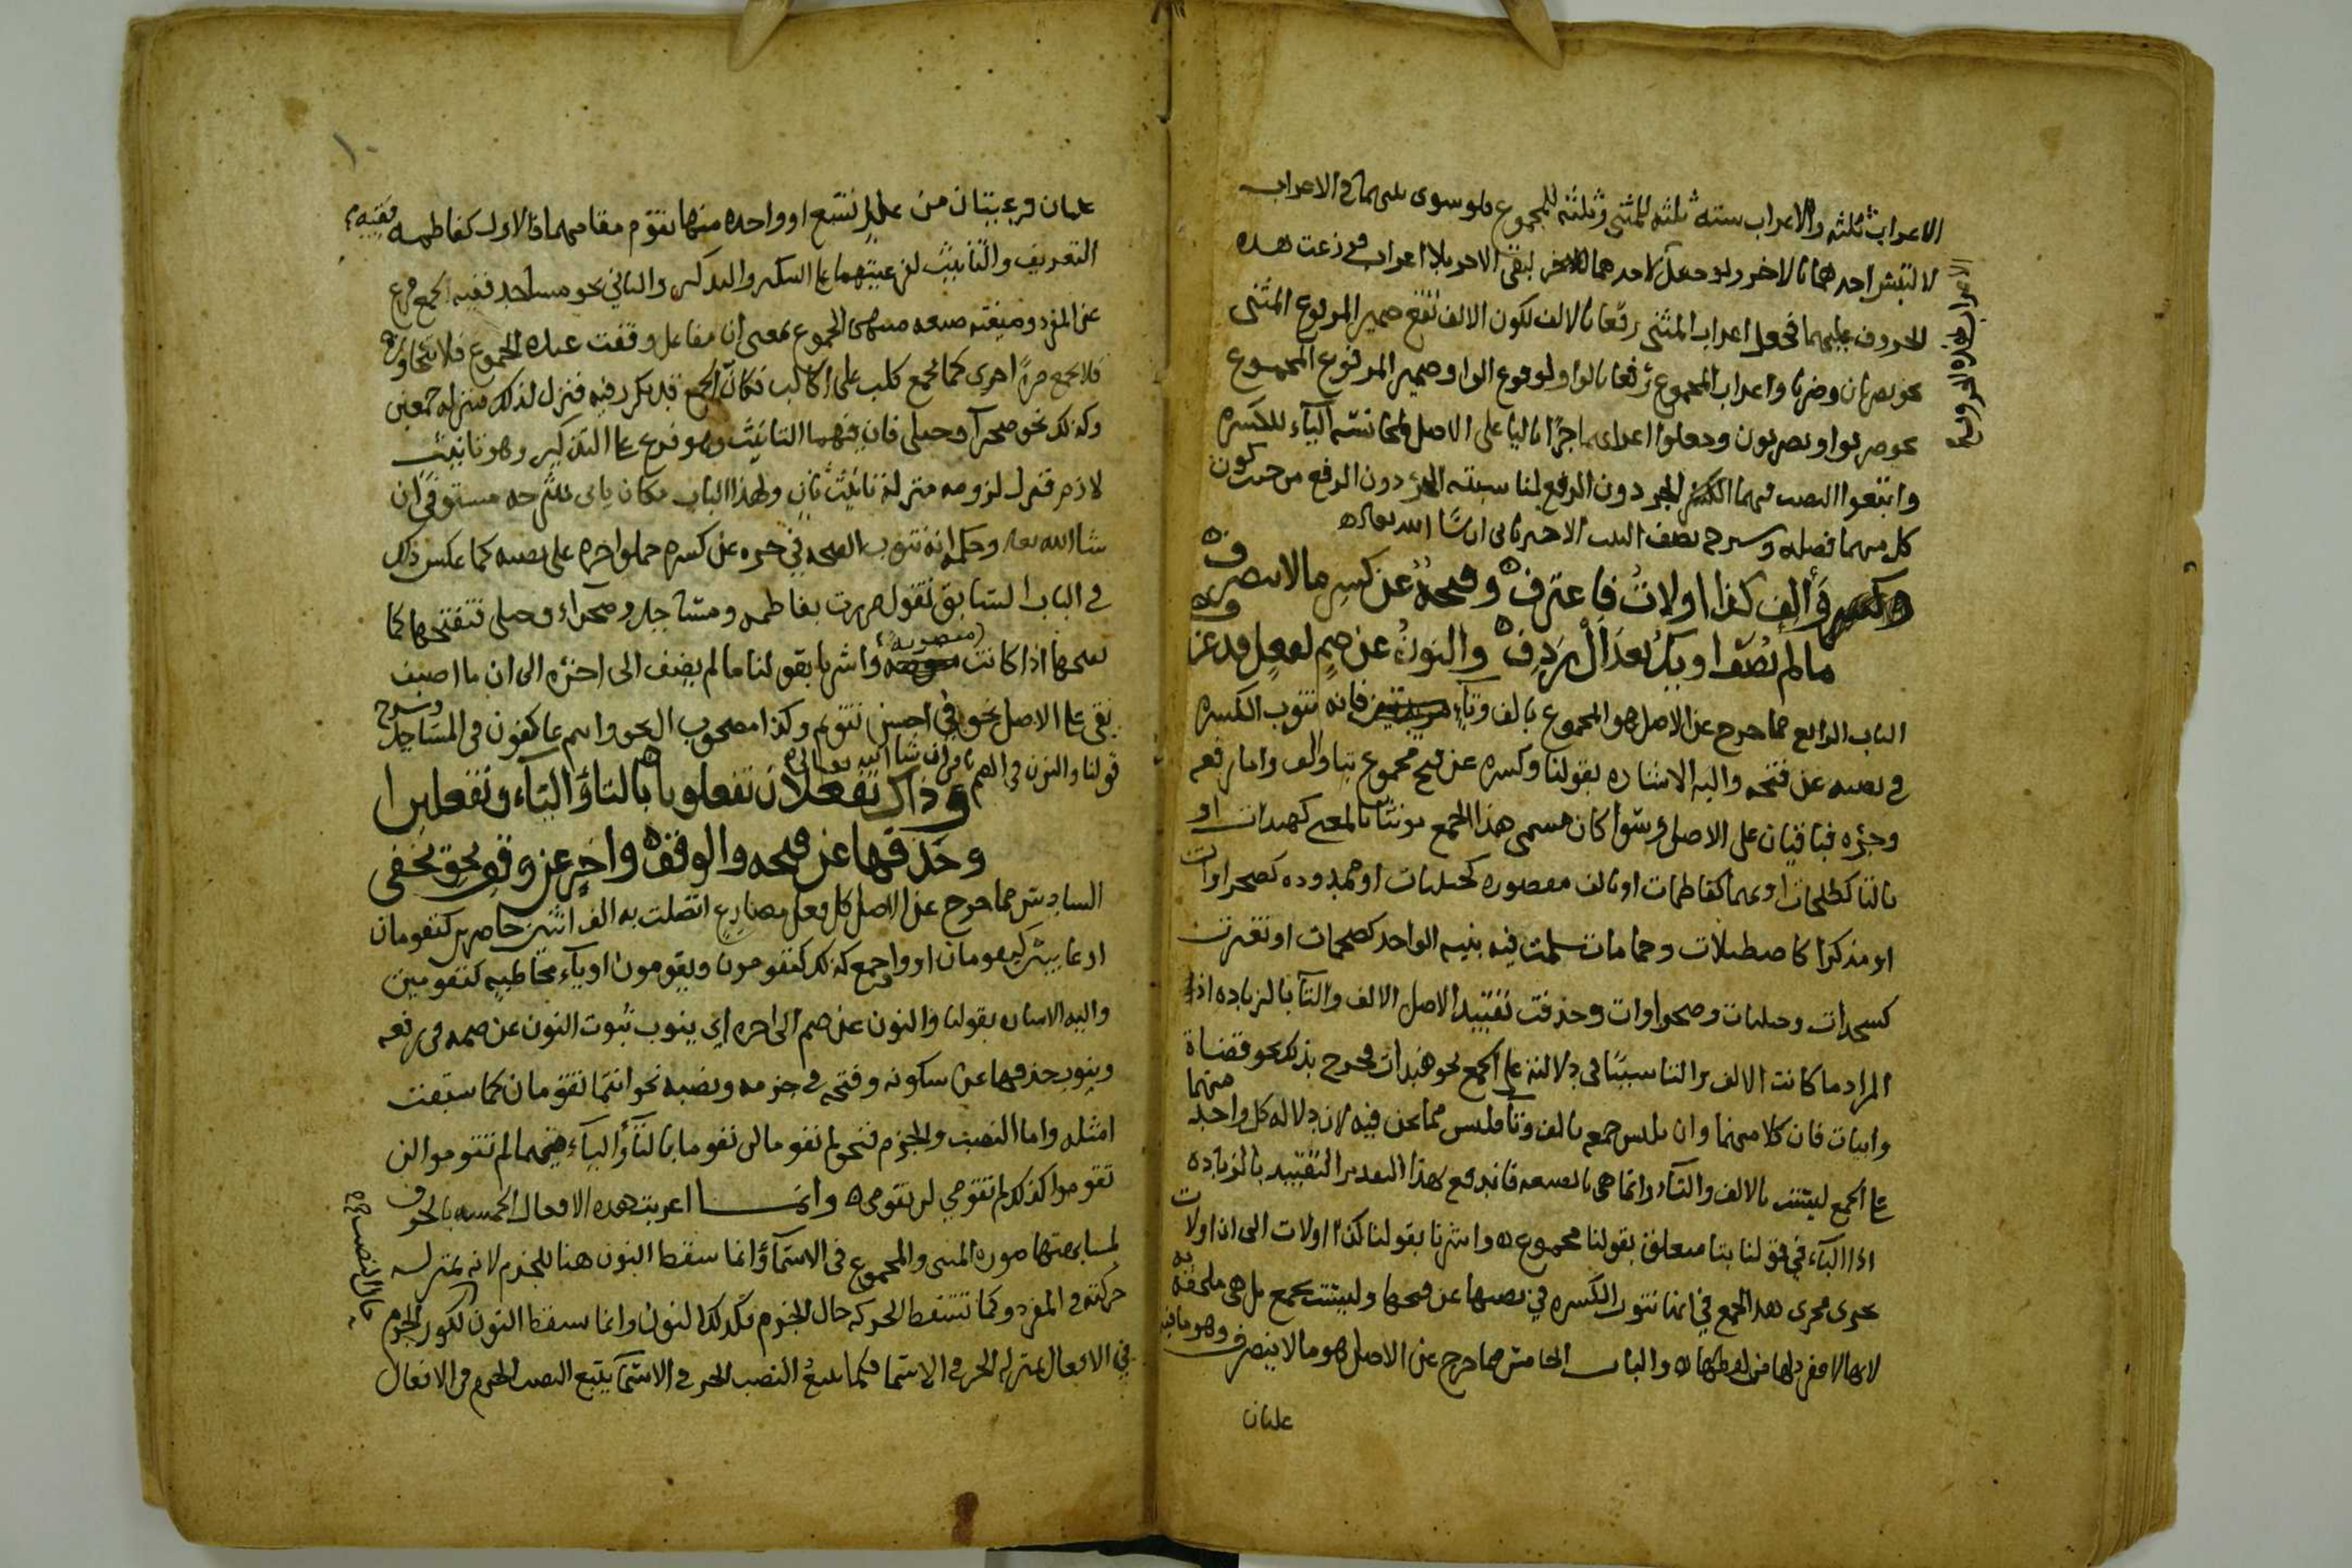 الاعراب ثلثه والاعراب سته ثلثه للمثنى وثلثه للمجموع فلو سوى بينهما في الاعراب
لالتبس احدهما بالاخر ولو جعل لاحدهما للاخر لبقى الاخر بلا اعراب فوزعت هذه
الحروف عليهما فجعل اعراب المثنى رفعا بالالف لكون الالف تقع ضمير المرفوع المثنى
نحو يضربان وضربا واعراب المجموع رفعا بالواو لوقوع الواو ضمير المرفوع المجموع
نحو ضربوا ويضربون وجعلوا اعرابهما جرا باليا على الاصل لمجانسة الياء للكسره
واتبعوا النصب فيهما الجر دون الرفع لمناسبته الجر دون الرفع من حيث كون
كل منهما فضله وشرح نصف البيت الاخير ياتى ان شا الله تعالى
والف كذا اولات فاعترف وفتحة عن كسر ما لا ينصرف
ما لم يضف او يك بعد ال ردف والنون عن ضم لفعل قد عرف
الباب الرابع مما خرج عن الاصل هو المجموع بالف وتاء فانه تنوب الكسره
في نصبه عن فتحه واليه الاشاره بقولنا وكسره عن فتح مجموع بتا والف واما رفعه
وجره فباقيان على الاصل وسوا كان مسمى هذا الجمع مونثا بالمعنى كهندات او
بالتا كطلحات او بهما كفاطمات او بالف مقصوره كحبليات او ممدوده كصحراوات
او مذكرا كاصطبلات وحمامات سلمت فيه بنيه الواحد كضخمات او تغيرت
كسجدات وحبليات وصحراوات وحذفت تقييد الاصل الالف والتا بالزياده اذ
المراد ما كانت الالف والتا سببا في دلالته على الجمع نحو هندات فخرج بذلك نحو قضاة
وابيات فان كلا منهما وان يلبس جمعه بالف وتا فليس مما نحن فيه لان دلاله كل واحد منهما
على الجمع ليست بالالف والتاء وانما هي بالصيغه فاندفع بهذا التقدير التقييد بالزياده
اذ الباء في قولنا بتا متعلق بقولنا مجموع واشرنا بقولنا كذا اولات الى ان اولات
تجرى مجرى هذا الجمع في انها تنوب الكسره في نصبها عن فتحها وليست بجمع بل هي ملحقه به
لانها لا مفرد لها من لفظها والباب الخامس مما خرج عن الاصل هو ما لا ينصرف وهو ما فيه
علتان
١٠
علتان فرعيتان من علل تسع او واحده منها تقوم مقامهما فالاول كفاطمه ففيه
التعريف والتانيث لفرعيتهما على التنكير والتذكير والثاني نحو مساجد ففيه الجمع فرع
عن المفرد وصيغته صيغه منتهى الجموع بمعنى ان مفاعل وقفت عنده الجموع فلا تتجاوزه
فلا يجمع مرة اخرى كما يجمع كلب على اكالب فكان الجمع قد تكرر فيه فنزل لذلك منزله جمعين
وكذلك نحو صحرآ وحبلى فان فيهما التانيث وهو فرع على التذكير وهو تانيث
لازم فنزل لزومه منزلة تانيث ثان ولهذا الباب مكان ياتى شرحه مستوفى ان
شا الله تعالى وحكمه انه تنوب الفتحه في جره عن كسره حملوا جره على نصبه كما عكس ذلك
في الباب السابق تقول مررت بفاطمه ومساجد وصحراء وحبلى فتفتحها كما
تفتحها اذا كانت منصوبة واشرنا بقولنا ما لم يضف الى اخره الى ان ما اضيف
بقى على الاصل نحو في احسن تقويم وكذا مصحوب ال نحو وانتم عاكفون في المساجد وشرح
قولنا والنون في الضم ياتي ان شا الله تعالى
وذاك تفعلان تفعلوبا بالتاء والياء وتفعلين
وحذفها عن فتحه والوقف واخر عن وقو نحو يخفى
السادس مما خرج عن الاصل كل فعل مضارع اتصلت به الف اثنين حاضرين كتقومان
او غايبين كيقومان او واو جمع كذلك كتقومون ويقومون او ياء مخاطبه كتقومين
واليه الاشاره بقولنا والنون عن ضم الى اخره اي ينوب ثبوت النون عن ضمه في رفعه
وينوب حذفها عن سكونه وفتحه في جزمه ونصبه نحو انتما تقومان كما سبقت
امثله واما النصب والجزم فنحو لم تقوما لن تقوما بالتاء والياء فيهما لم تقوموا لن
تقوموا كذلك لم تقومي لن تقومي وانما اعربت هذه الافعال الخمسه بالحروف
لمشابهتها صوره المثنى والمجموع في الاسماء وانما سقط النون هنا للجزم لانه بمنزله
حركته في المفرد وكما تسقط الحركه حال الجزم فكذلك النون وانما سقط النون لكون الجزم
في الافعال بمنزله الجر في الاسما فكما يتبع النصب الجر في الاسما يتبع النصب الجزم في الافعال
حال النصب